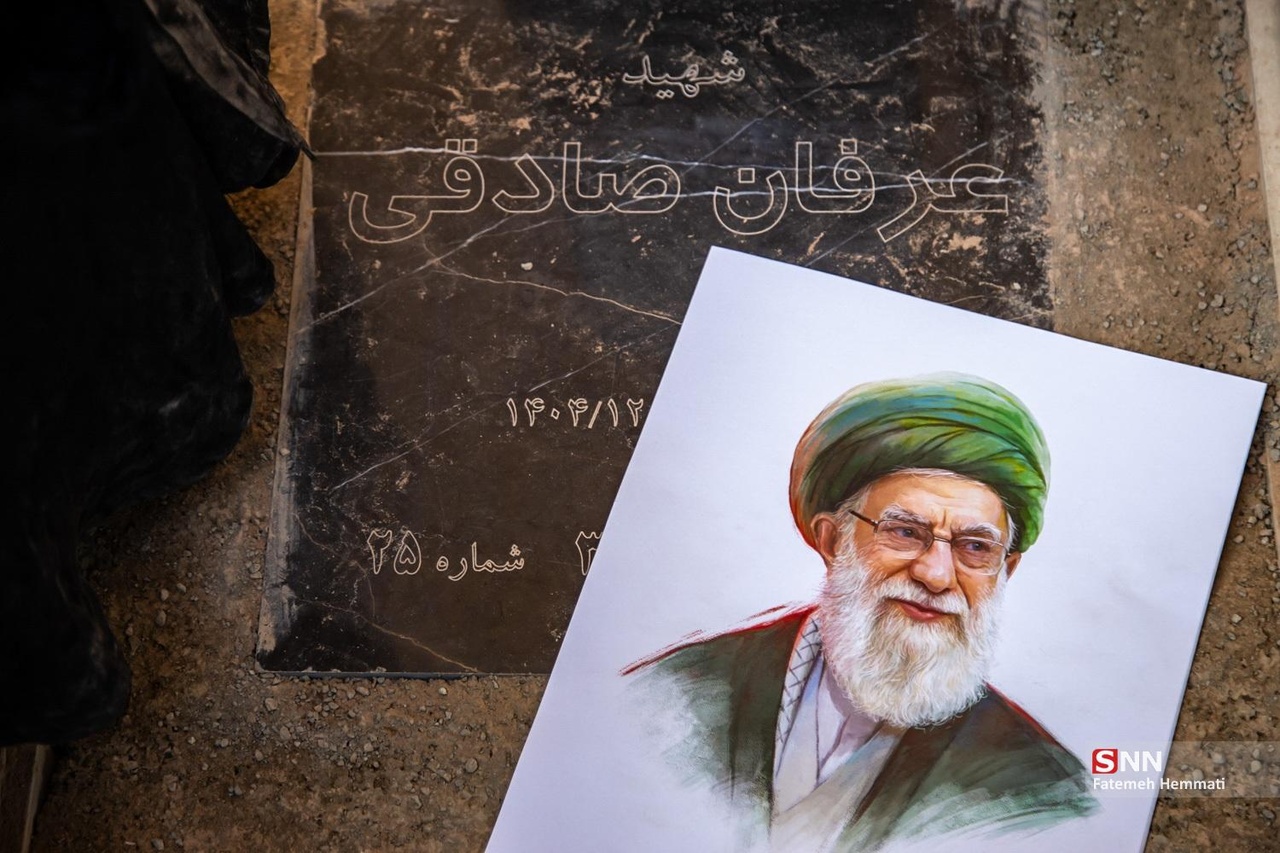 شهید
عرفان صادقی
۱۴۰۴/۱۲
۳ شماره ۲۵
SNN
Fatemeh Hemmati